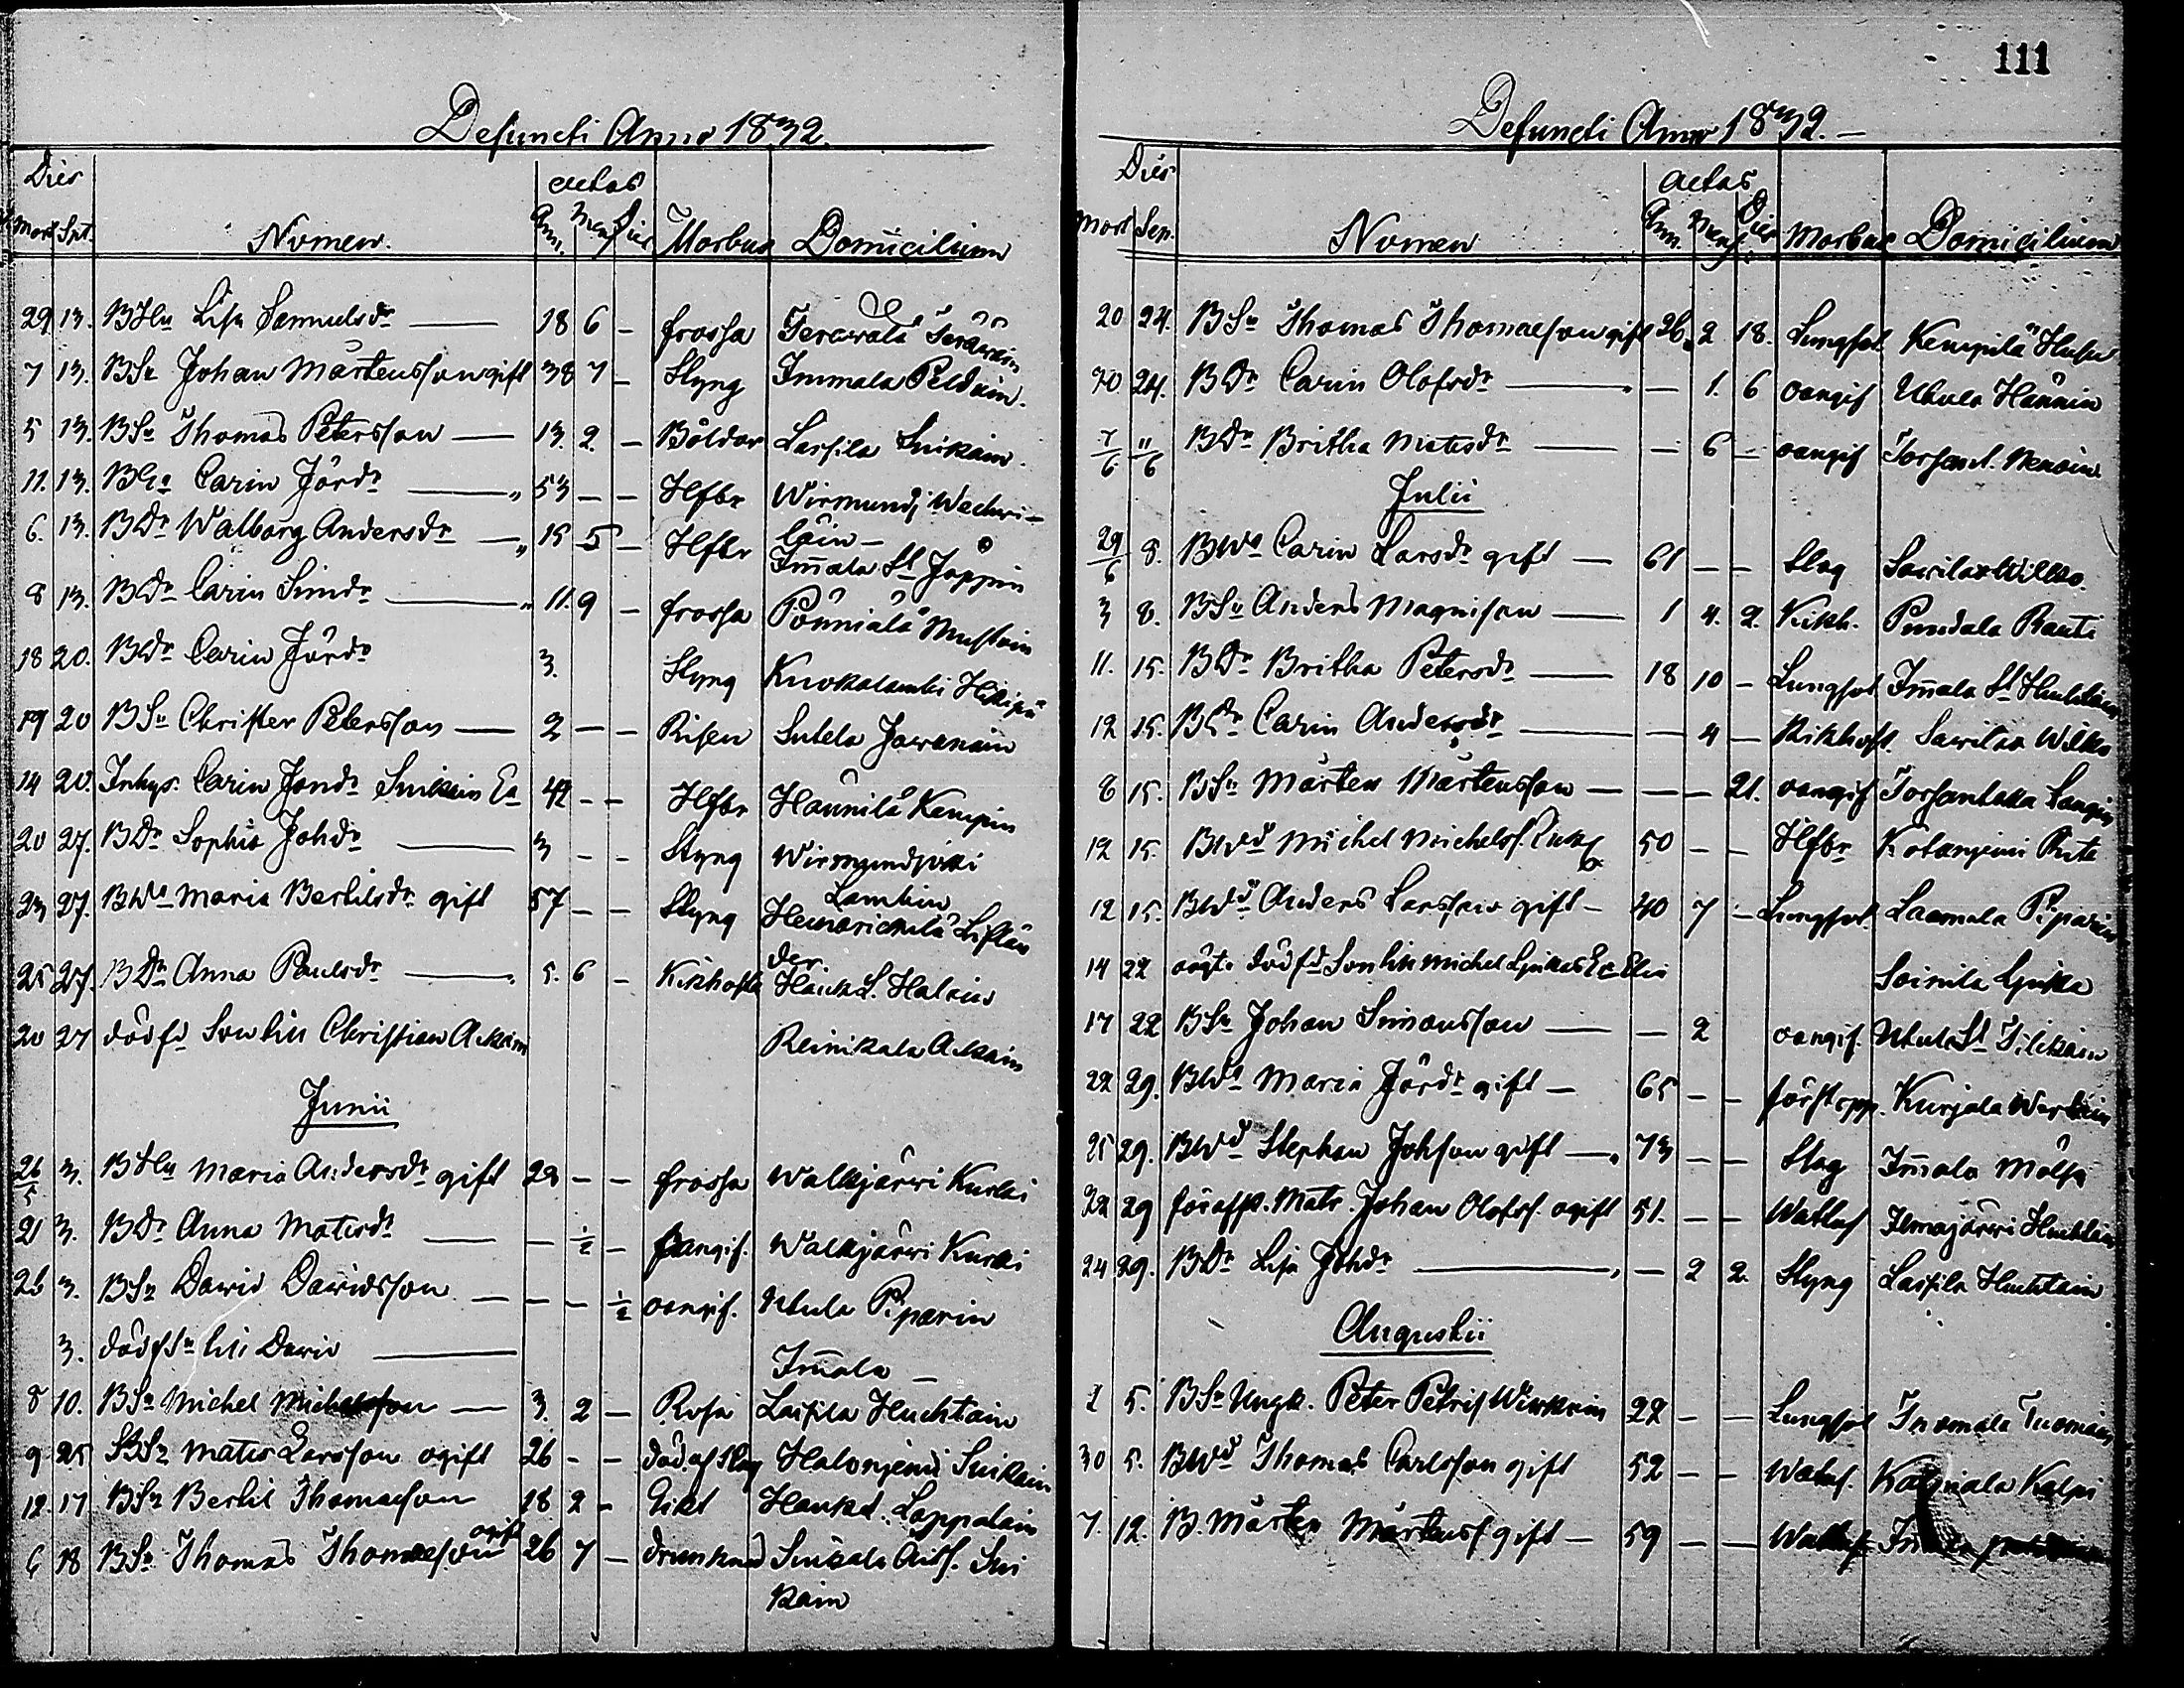 Defuncti Anno 1832.
Dies aetas
Mort Spt. Nomen. Ann. Men Dies Morbus Domicilium
29 13. BHu Lisa Samuelsdr — 18 6 – frossa Terävälä Teräväin
7 13. BSn Johan Mårtensson gift 38 7 – Styng Immala Peldoin.
5 13. BSn Thomas Petersson — 13. 2. – Båldar Lasila Suikain.
11. 13. Carin Jördr — 53 – – Hfbr Wirmundj Wechvi-
läin –
6. 13. BDr Walborg Andersdr — 15 5 – Hfbr Im̄ala St Joppin
8 13. BDr Carin Simdr — 11. 9 – frossa Pönniälä Mustoin
18 20. BDr Carin Jördr 3. Styng Kuokalambi
19 20 BSn Christer Petersson — 2 – – Risen Sutela Jawanain
14 20. Inhys. Carin Jondr Suikain Ea 42 – – Hfbr Hannila Kempin
20 27. BDr Sophia Johdr — 3 – – Styng Wirmundjoki
Lambin
23 27. BWa Maria Bertilsdr gift 57 – – Styng
der
25 27. BDr Anna Paulsdr — 5. 6 – Kikhosta Hauk S. Halains
20 27 dödfd Son till Christian Ackain Reinikala Ackain
Junii
26/5 3. BHu Maria Andersdr gift 22 – – frossa Walkjärvi Kurki
21 3. BDr Anna Matsdr — – ½ – oangif. Walkjärvi Kurki
26 3. BSn David Davidsson – – – ½ oangif. Utula Piparin
3. dödf Sn till David — Im̄ala –
8 10. BSn Michel Michelsson — 3. 2 – Rosa Laipila Huchtain
9 25 SBSn Mats Larsson ogift 26 – – död af Slag Halonjemi Suikain
12. 17 BSn Bertil Thomasson 18 2 – Gikt Haukd. Lappalain
6 18 BSn Thomas Thomasson ogift 26 7 – drunknad Suikala Sui
kain
111
Defuncti Anno 1832. –
Dies aetas
Mort Sep. Nomen Ann. Mens. Dies Morbus Domicilium
20 24. BSn Thomas Thomasson gift 26. 2 18. Lungsot Kempilä
20. 24. BDr Carin Olofsdr — – 1. 6 oangif Utula Hännin
7/6 11/6 BDr Britha Matsdr — – 6 – oangif Torsans.
Julii
29/6 8. BWa Carin Larsdr gift — 61 – – Slag Savilax Wilko.
3 8. BSn Anders Magnison — 1 4. 2. Kikh. Pundala Rauti
11. 15. BDr Britha Petersdr — 18 10 – Lungsot Im̄ala St Huchtain
12 15. BDr Carin Andersdr — – 4 – Kikhost. Savilax Wilko
8 15. BSn Mårten Mårtensson — – – 21. oangif Torsanlaka Sangin
12 15. BWd Michel Michelss. 50 – – Hfbr Kotanjemi
12 15. BWd Anders Larsson gift – 40 7 – Lungsot. Laamala Piparin
14 22 oägta dödfd Son till Michel Ljukas Ea Soinila Ljukka
17 22 BSn Johan Simonsson — – 2 oangif. Utula St Tilikain
22 29. BWa Maria Jördr gift – 65 – – förstopp. Kurjala
25 29. BWd Stephan Johson gift — 73 – – Slag Im̄ala Mölsä
22 29 föraffsk. Matr. Johan Olofss. ogift 51. – – Wattus Ilmajärvi Huchtain
24 29. BDr Lisa Johdr — – 2 2. Styng Laipila Huchtain
Augustii
1 5. BSn Ungk. Peter Petriss 22 – – Lungsot Tuomala Tuomain
30 5. BWd Thomas Carlsson gift 52 – – Watus. Kalpiala Kalpi
7. 12. B. Mårten Mårtenss gift – 59 – – Wattus